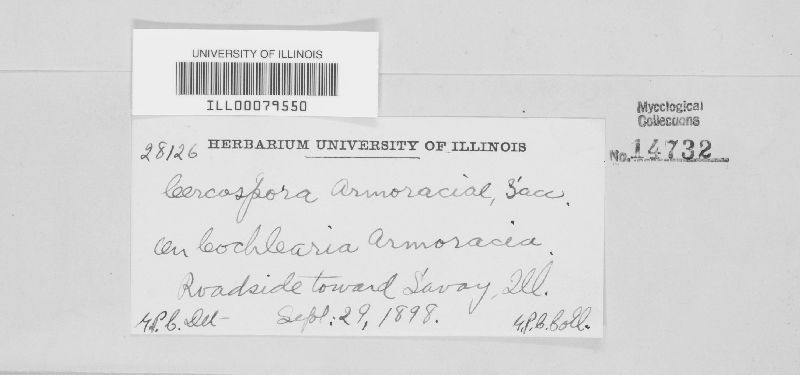 UNIVERSITY OF ILLINOIS
ILL00079550
Mycological
Collections
No. 14732
28126 HERBARIUM UNIVERSITY OF ILLINOIS
Cercospora Armoraciae, Sacc.
On Cochlearia Armoracia.
Roadside toward Savoy, Ill.
G.P.C. Det Sept. 29, 1898. G.P.C. Coll.